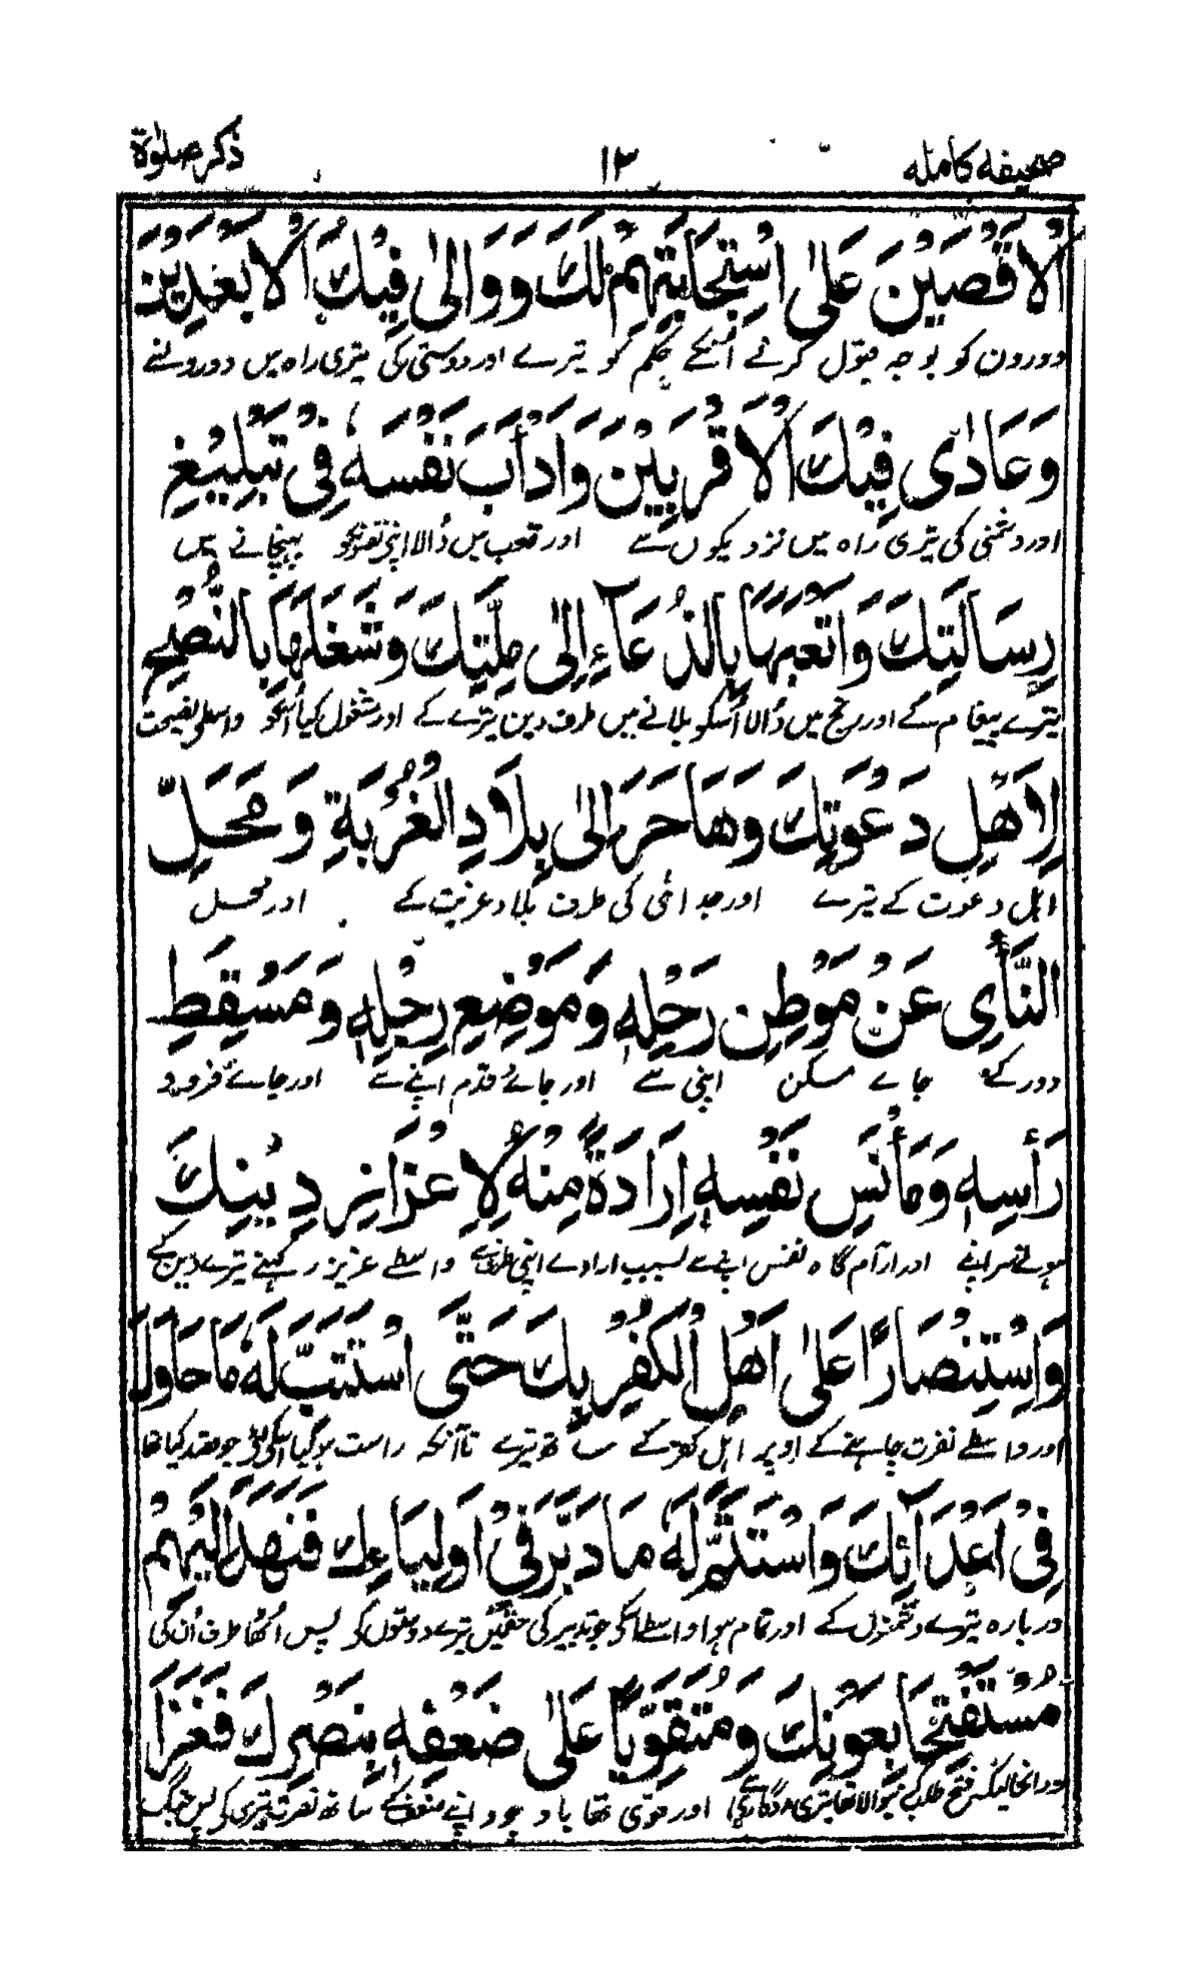 صحیفہ کاملہ ۱۳ ذکر صلوٰۃ
الْاَقْصَيْنَ عَلٰى اسْتِجَابَتِهِمْ لَكَ وَوَالٰى فِيْكَ الْاَبْعَدِيْنَ
دورون کو بوجہ قبول کرنے اُنکے حکم کو تیرے اور دوستی کی تیری راہ میں دورونسے
وَعَادٰى فِيْكَ الْاَقْرَبِيْنَ وَاَدْاَبَ نَفْسَهٗ فِيْ تَبْلِيْغِ
اور دشمنی کی تیری راہ میں نزدیکوں سے اور تعب میں ڈالا اپنے نفس کو پہنچانے میں
رِسَالَتِكَ وَاَتْعَبَهَا بِالدُّعَآءِ اِلٰى مِلَّتِكَ وَشَغَلَهَا بِالنُّصْحِ
تیرے پیغام کے اور رنج میں ڈالا اُسکو بلانے میں طرف دین تیرے کے اور مشغول کیا اُسکو واسطے نصیحت
لِاَهْلِ دَعْوَتِكَ وَهَاجَرَ اِلٰى بِلَادِ الْغُرْبَةِ وَمَحَلِّ
اہل دعوت کے تیرے اور جدائی کی طرف بلاد غربت کے اور محل
النَّأْيِ عَنْ مَوْطِنِ رَحْلِهٖ وَمَوْضِعِ رِجْلِهٖ وَمَسْقَطِ
دور کے جاے مسکن اپنی سے اور جائے قدم اپنے سے اور جاے فرود
رَأْسِهٖ وَمَأْنَسِ نَفْسِهٖ اِرَادَةً مِنْهُ لِاِعْزَازِ دِيْنِكَ
ہونے سر اپنے اور آرام گاہ نفس اپنے سے بسبب ارادے اپنی طرف سے واسطے عزیز رکھنے تیرے دین کے
وَاسْتِنْصَارًا عَلٰى اَهْلِ الْكُفْرِ بِكَ حَتّٰى اسْتَتَبَّ لَهٗ مَا حَاوَلَ
اور واسطے نصرت چاہنے کے اوپر اہل کفر کے ساتھ تیرے تاآنکہ راست ہوگیا اسکے لئے جو قصد کیا تھا
فِيْ اَعْدَآئِكَ وَاسْتَتَمَّ لَهٗ مَا دَبَّرَ فِيْ اَوْلِيَاءِكَ فَنَهَدَ اِلَيْهِمْ
دربارہ تیرے دشمنوں کے اور تمام ہوا واسطے اسکے جو تدبیر کی تیرے دوستوں کو پس اُٹھا طرف اُن کی
مُسْتَفْتِحًا بِعَوْنِكَ وَمُتَقَوِّيًا عَلٰى ضَعْفِهٖ بِنَصْرِكَ فَغَزَا
درانحالیکہ فتح طلب کرنیوالا تھا تیری مددگاری سے اور قوی تھا باوجود اپنے ضعف کے ساتھ نصرت تیری کی پس جنگ